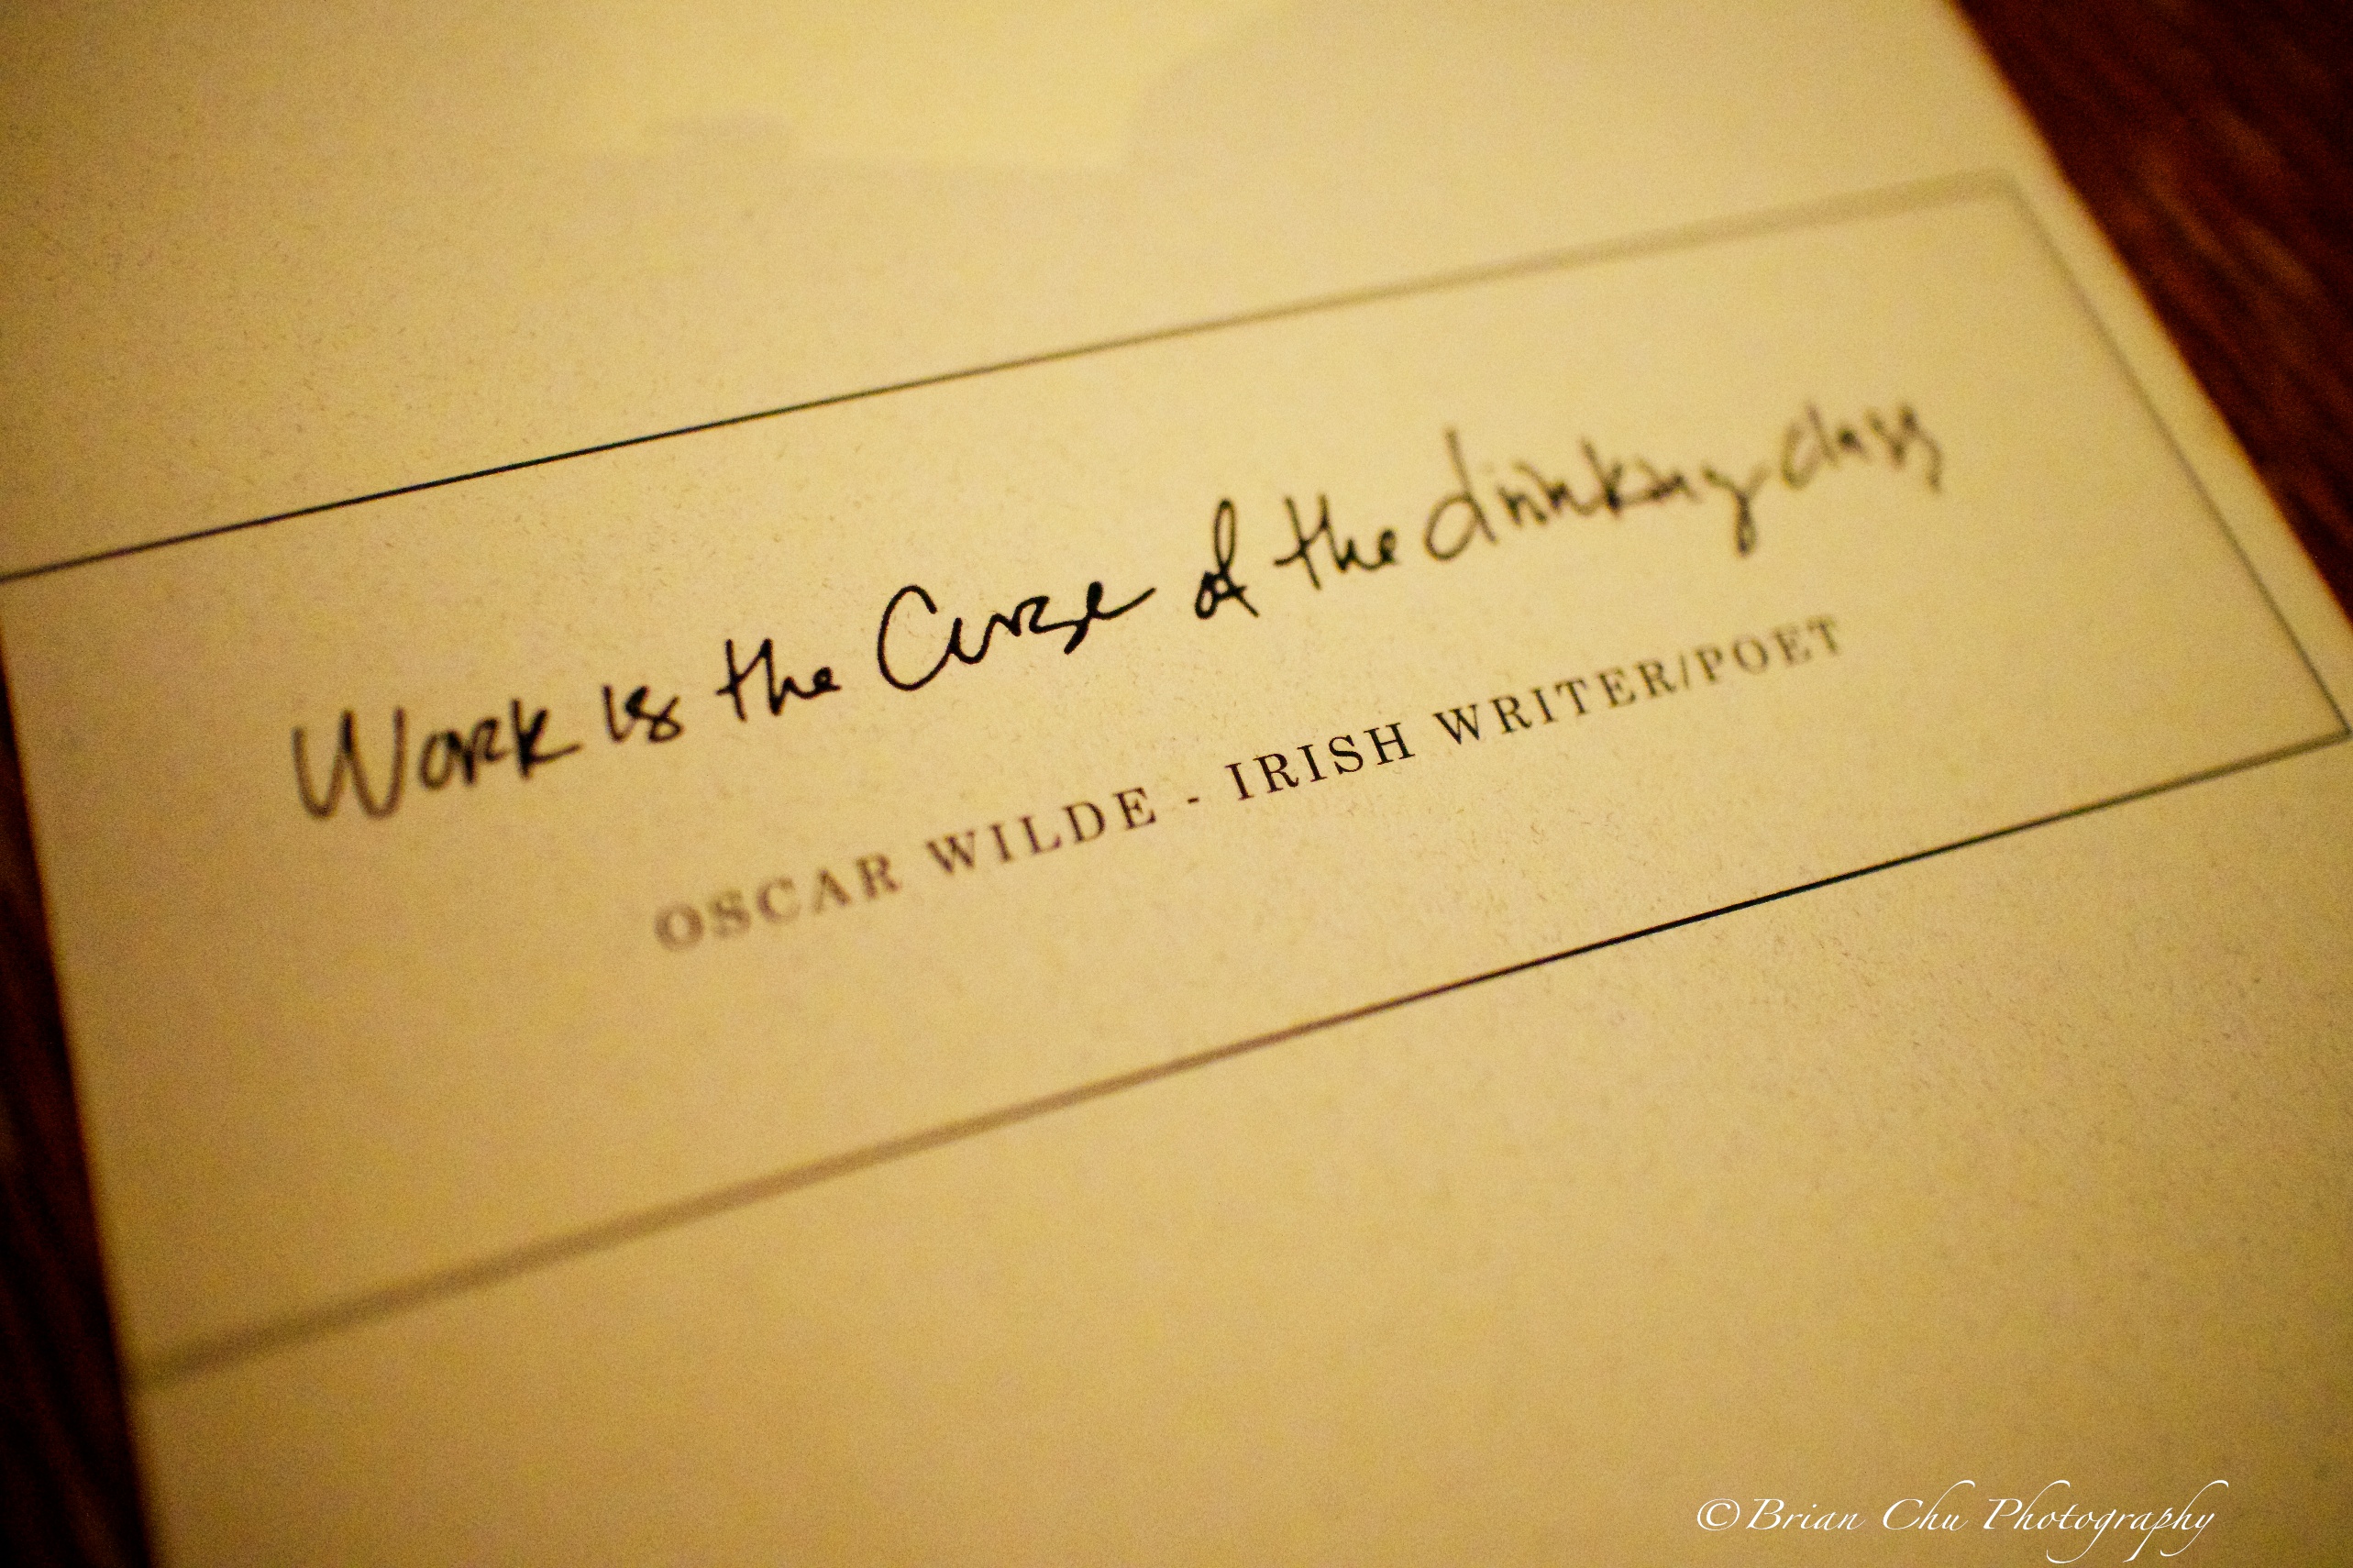 Work is the Curse of the drinking class
OSCAR WILDE - IRISH WRITER/POET
©Brian Chu Photography